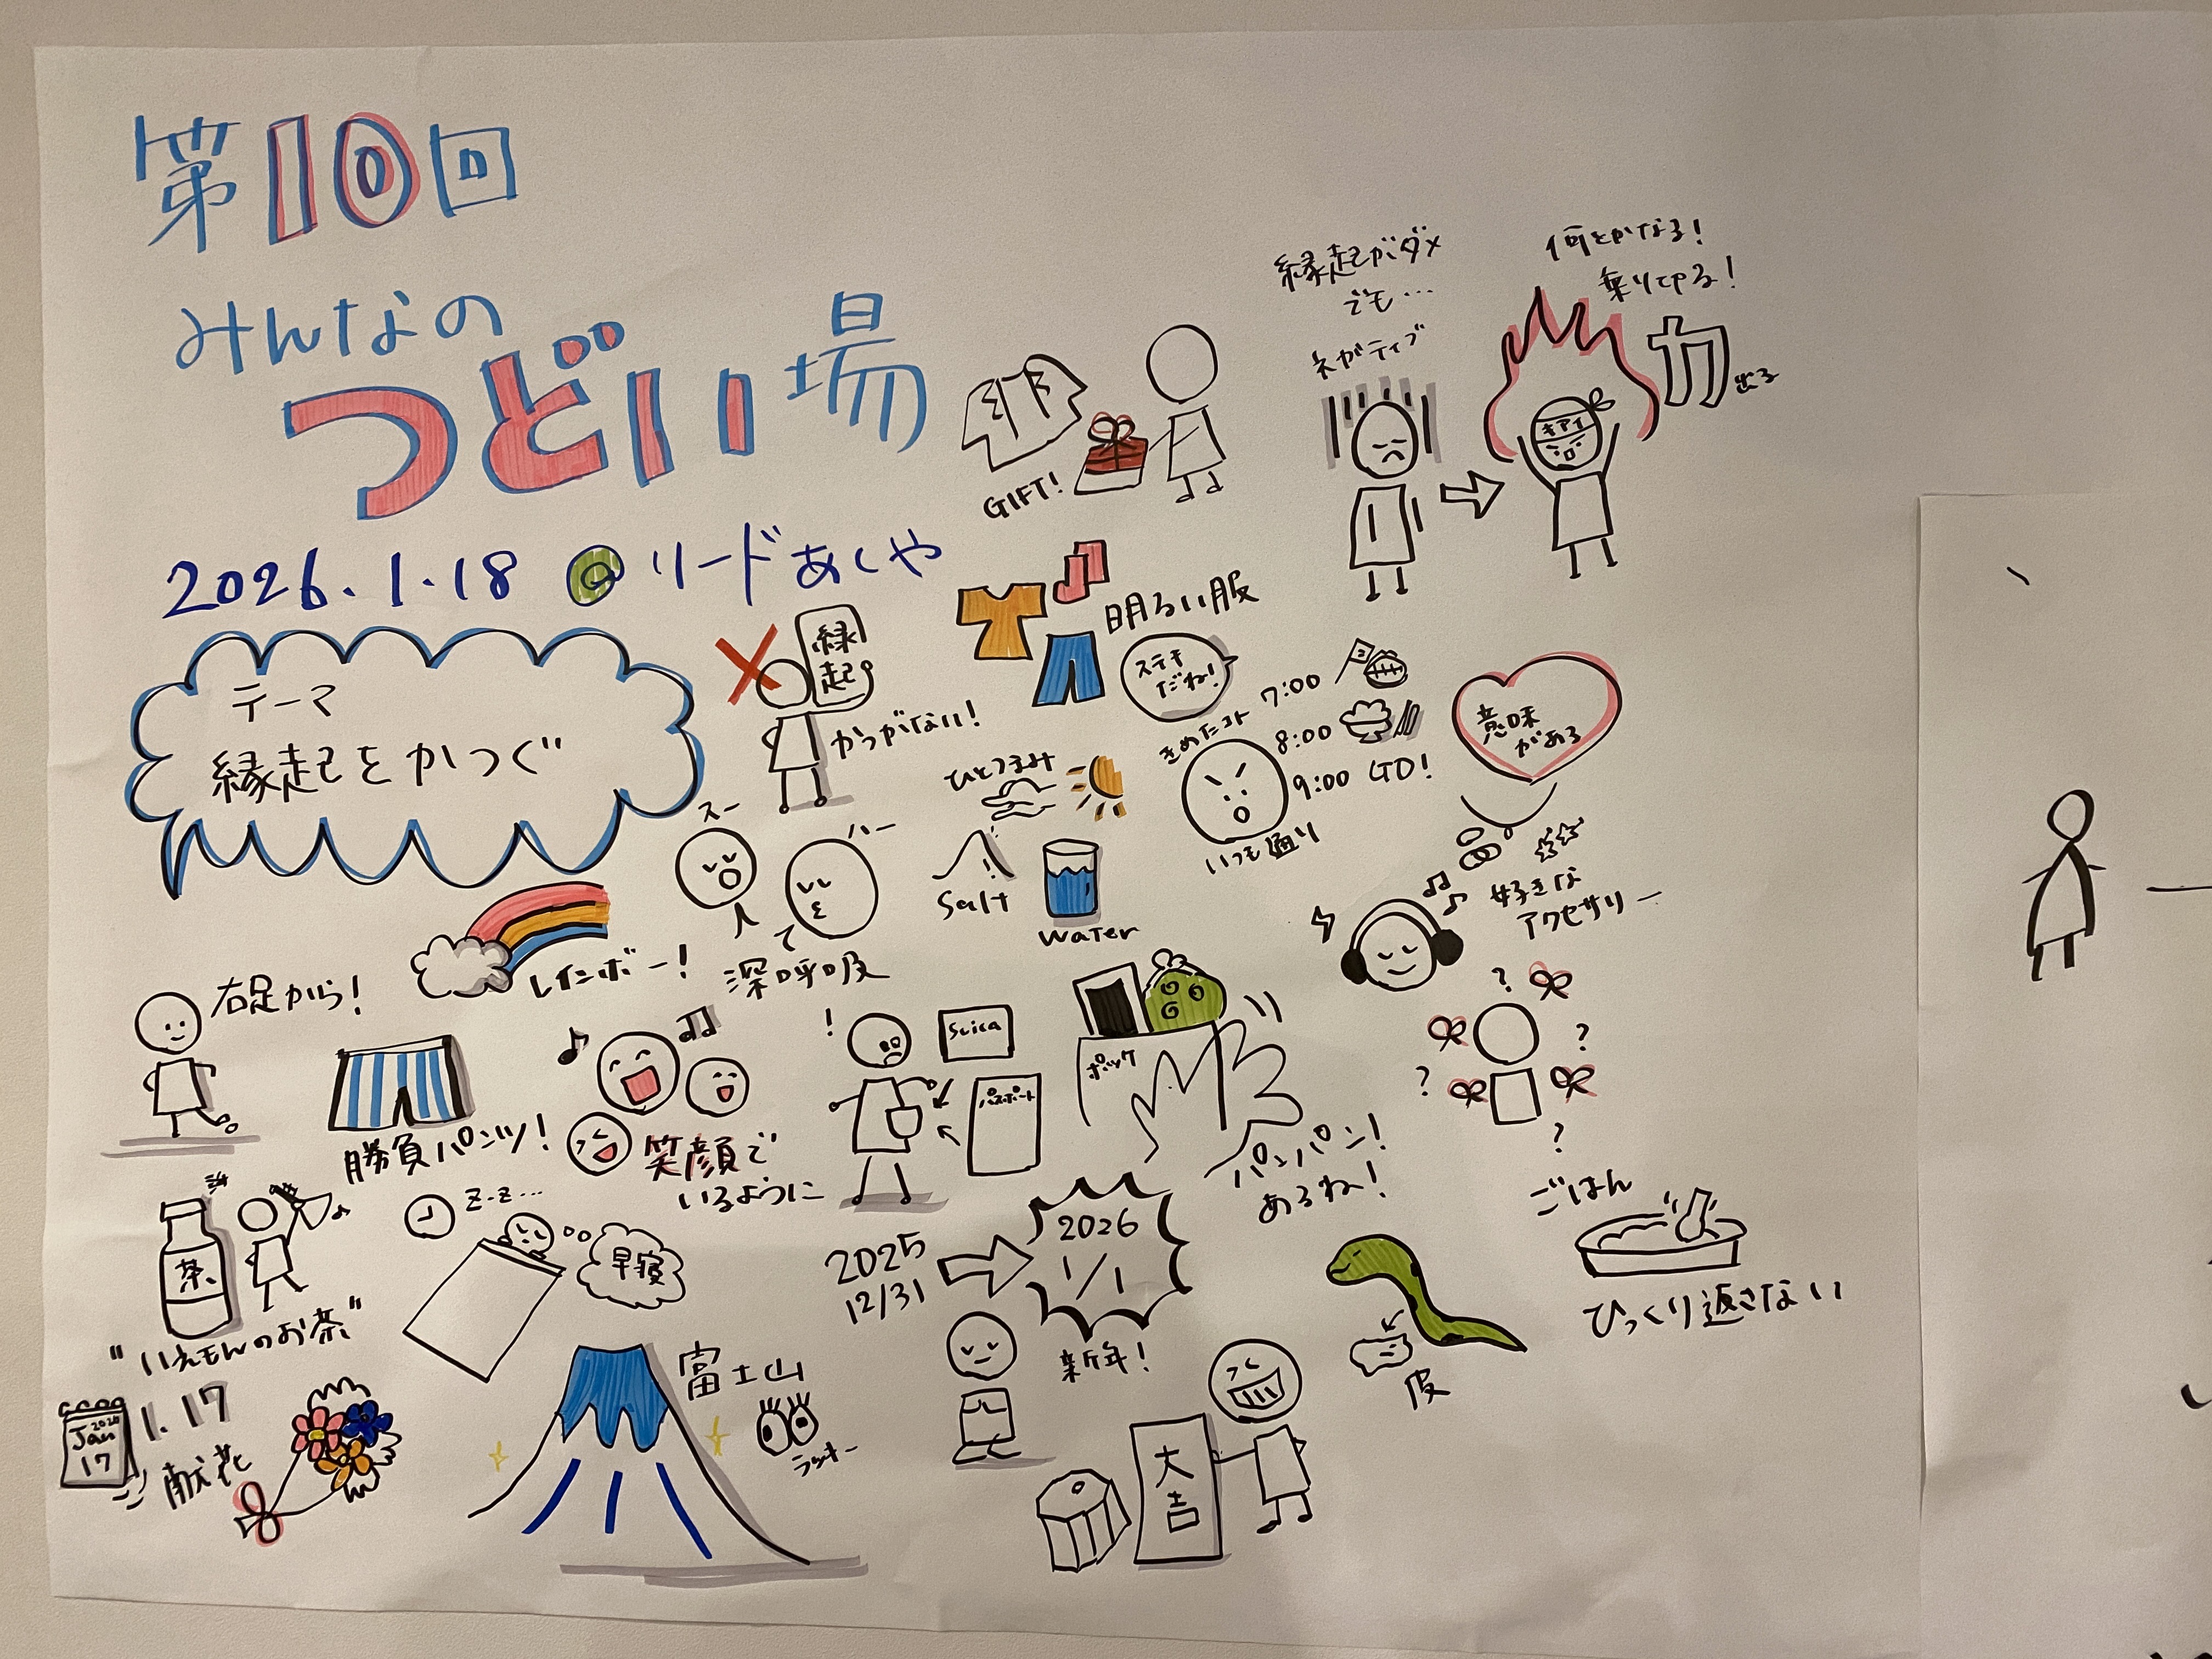 第10回
みんなの
つどい場
2026.1.18 @リードあしや
テーマ
縁起をかつぐ
縁起
かつがない!
GIFT!
縁起がダメ
でも…
ネガティブ
何とかなる!
乗りてゆる!
キアイ
力出る
明るい服
ステキ
だね!
きめたコト
7:00
8:00
9:00 GO!
いつも通り
意味
がある
好きな
アクセサリー
ひとつまみ
Salt
water
スー
ハー
深呼吸
レインボー!
右足から!
勝負パンツ!
笑顔で
いるように
!
Suica
パスポート
ポッケ
パンパン!
あるね!
?
?
?
?
茶
"いえもんのお茶"
Z-Z…
早寝
2025
12/31
2026
1/1
新年!
皮
ごはん
ひっくり返さない
2026
Jan
17
1.17
献花
富士山
ラッキー
大吉